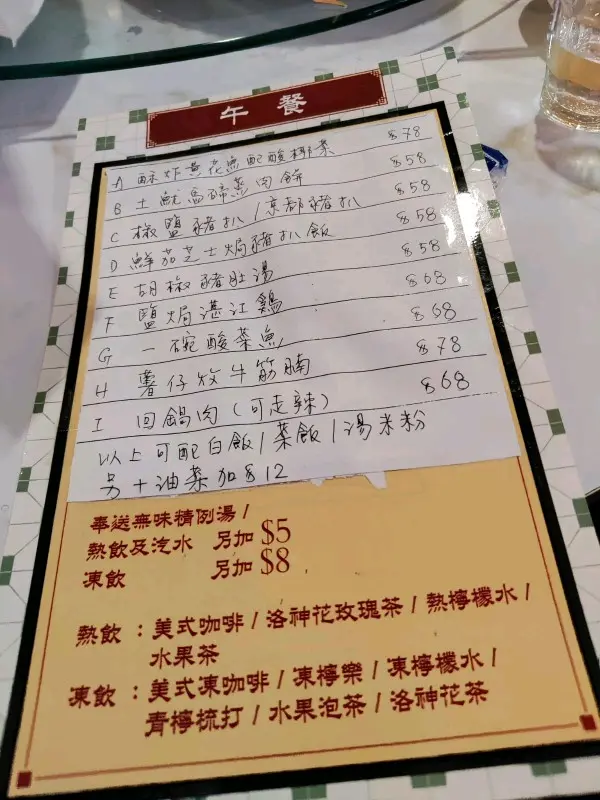 午餐
A 酥炸黃花魚配酸椰菜 $78
B 土魷馬蹄蒸肉餅 $58
C 椒鹽豬扒 / 京都豬扒 $58
D 鮮茄芝士焗豬扒飯 $58
E 胡椒豬肚湯 $58
F 鹽焗湛江鷄 $68
G 一碗酸菜魚 $68
H 薯仔炆牛筋腩 $78
I 回鍋肉(可走辣) $68
以上可配白飯 / 菜飯 / 湯米粉
另+油菜加$12
奉送無味精例湯 /
熱飲及汽水 另加 $5
凍飲 另加 $8
熱飲：美式咖啡 / 洛神花玫瑰茶 / 熱檸檬水 /
水果茶
凍飲：美式凍咖啡 / 凍檸樂 / 凍檸檬水 /
青檸梳打 / 水果泡茶 / 洛神花茶